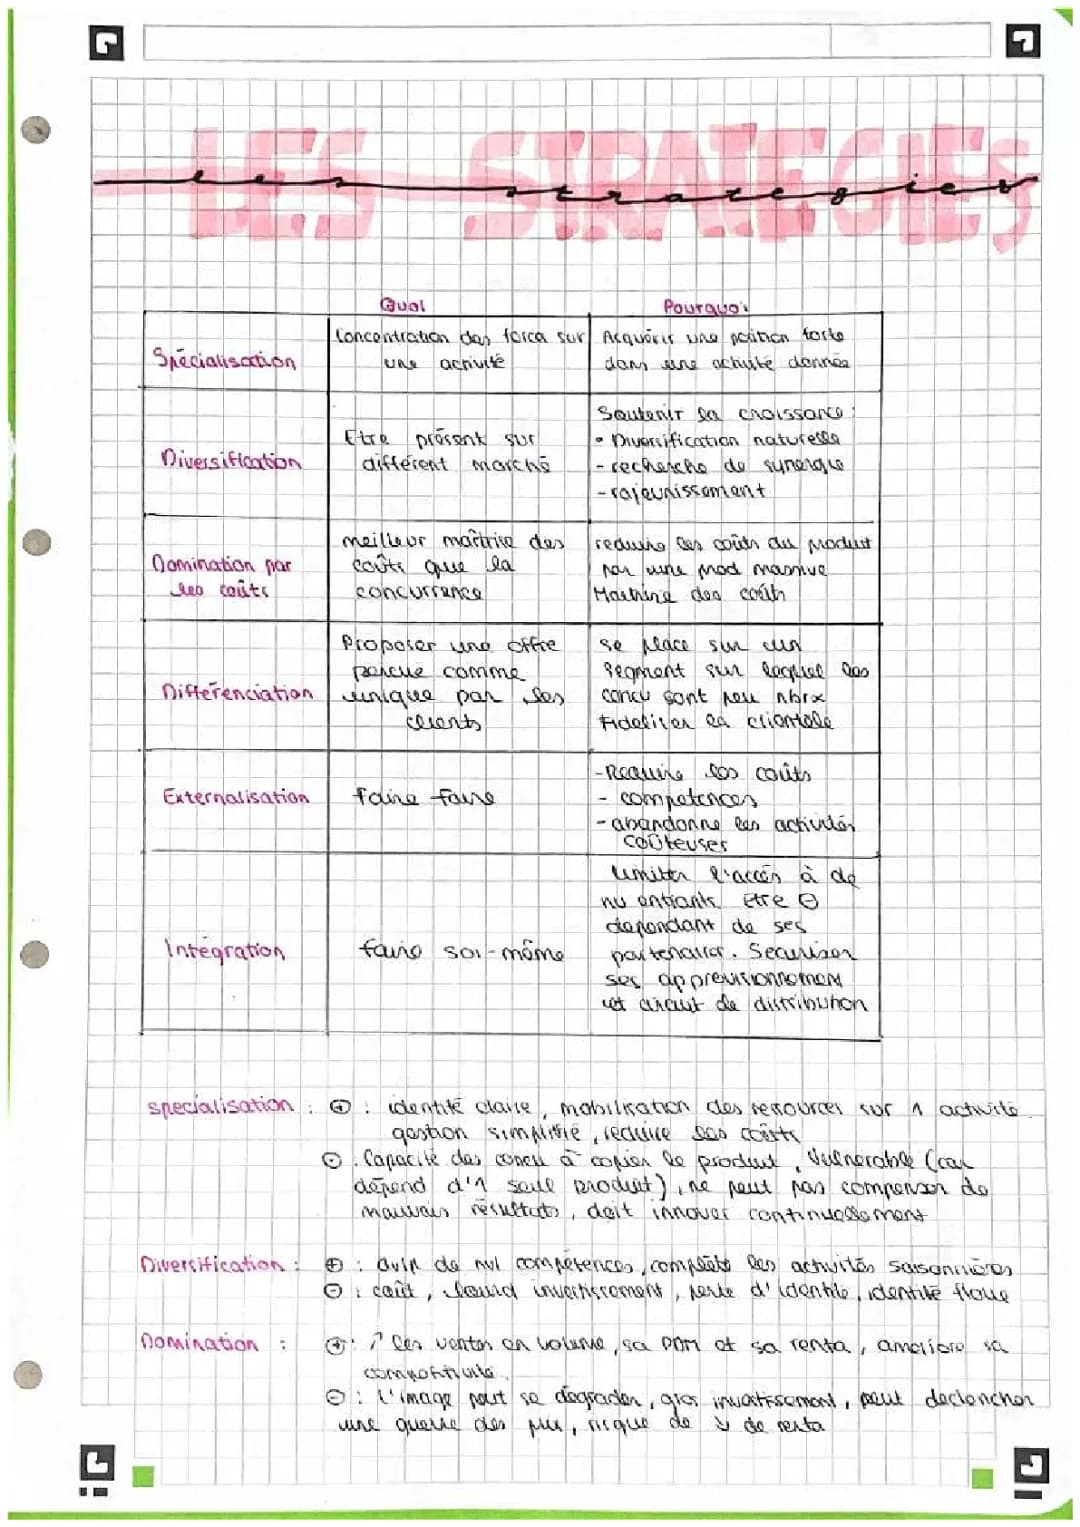 LES STRATEGIES
les strategies
Quoi Pourquoi
Spécialisation
Concentration des force sur
une activité
Acquérir une position forte
dans une activité donnée
Diversification
Etre présent sur
différent marché
Soutenir la croissance :
• Diversification naturelle
- recherche de synergie
- rajeunissement
Domination par
les coûts
meilleur maîtrise des
coûts que la
concurrence
reduire les coûts du produit
par une prod massive
des coûth
Différenciation
Proposer une offre
percue comme
unique par les
clients
se place sur un
segment sur lequel les
concu sont peu nbrx
Fideliser la clientele
Externalisation
faire faire
- Reduire les coûts
- competences
- abandonne les activités
coûteuses
Intégration
faire soi-même
limiter l'accés à de
nv entrants Etre ⊖
dependant de ses
partenaires. Securiser
ses approvisionnement
et circuit de distribution
specialisation : ⊕ : identité claire, mobilisation des ressources sur 1 activité
gestion simplifié, reduire les coûts
⊖ : Capacité des concu à copier le produit, Vulnerable (car
dépend d'1 seul produit), ne peut pas compenser de
mauvais résultats, doit innover continuellement
Diversification : ⊕ : dvlp de nvl compétences, complète les activités saisonnières
⊖ : coût, lourd investissement, perte d'identité, identité floue
Domination : ⊕ : ↗ les ventes en volume, sa PDM et sa renta, ameliore sa
competitivité
⊖ : L'image peut se dégrader, gros investissement, peut declencher
une guerre des prix, risque de ↘ de renta